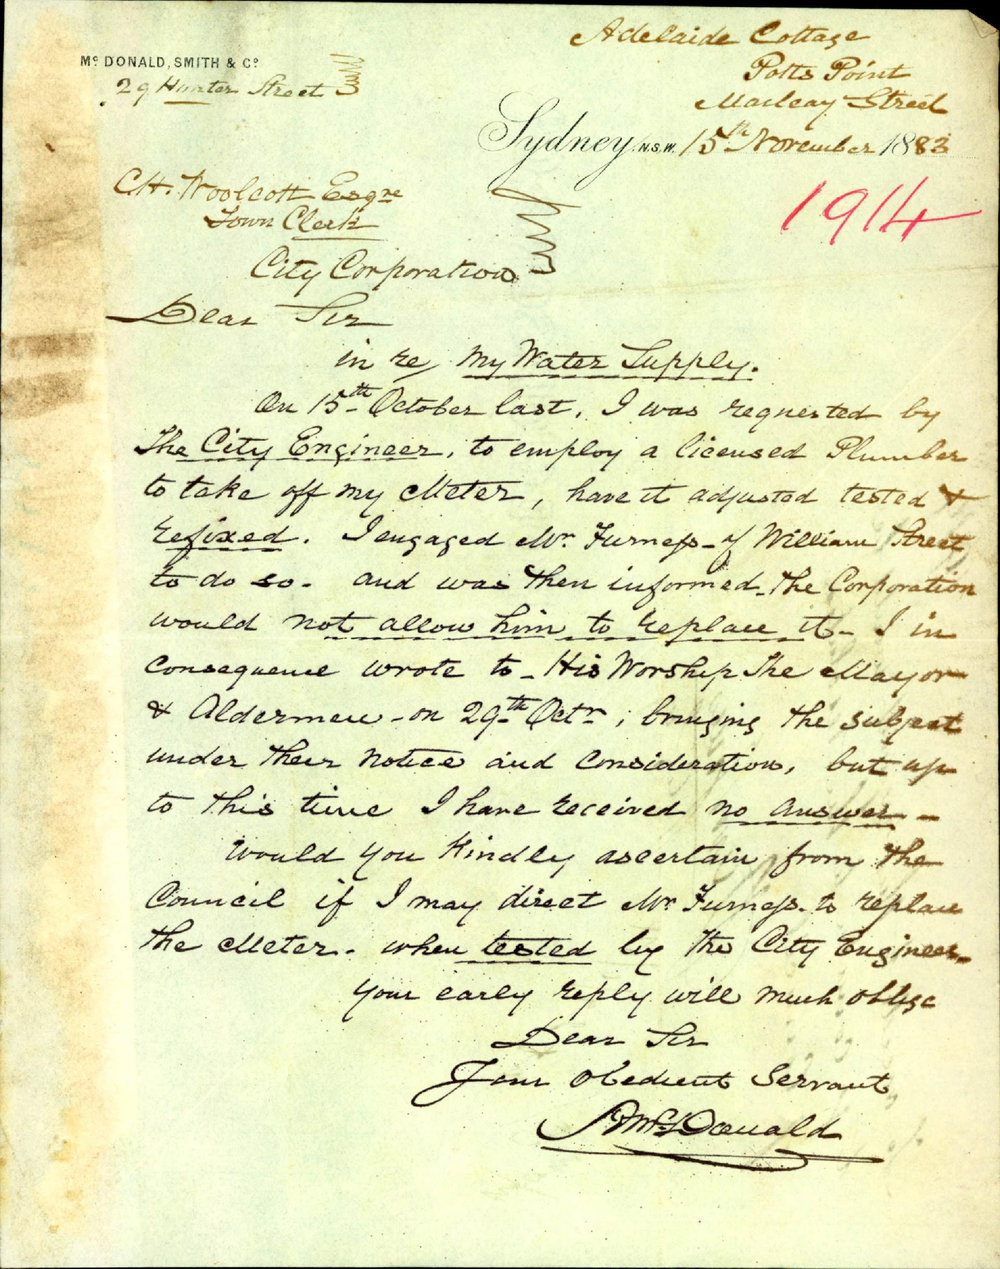 Mc DONALD, SMITH & Co
29 Hunter Street
Adelaide Cottage
Potts Point
Macleay Street
Sydney, N.S.W. 15th November 1883
1914
C.H. Woolcott Esqre
Town Clerk
City Corporation
Dear Sir
in re/ My Water Supply.
On 15th October last, I was requested by
The City Engineer, to employ a licensed Plumber
to take off my Meter, have it adjusted tested &
refixed. I engaged Mr. Furness - of William Street
to do so - and was then informed - the Corporation
would not allow him to replace it - I in
consequence wrote to - His Worship The Mayor
& Aldermen - on 29th Octr, bringing the subject
under their notice and consideration, but up
to this time I have received no answer -
Would you kindly ascertain from the
Council if I may direct Mr Furness. to replace
the Meter - when tested by the City Engineer -
Your early reply will much oblige
Dear Sir
Your obedient Servant
McDonald